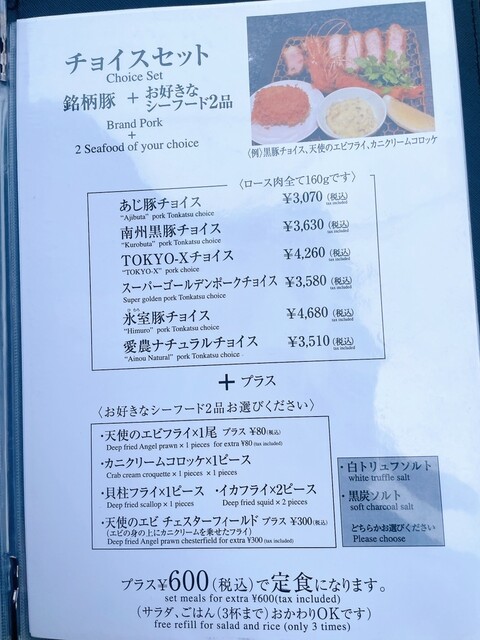 チョイスセット
Choice Set
銘柄豚 + お好きなシーフード2品
Brand Pork
+
2 Seafood of your choice
〈例〉黒豚チョイス、天使のエビフライ、カニクリームコロッケ
〈ロース肉全て160gです〉
あじ豚チョイス ¥3,070 (税込)
"Ajibuta" pork Tonkatsu choice tax included
南州黒豚チョイス ¥3,630 (税込)
"Kurobuta" pork Tonkatsu choice tax included
TOKYO-Xチョイス ¥4,260 (税込)
"TOKYO-X" pork choice tax included
スーパーゴールデンポークチョイス ¥3,580 (税込)
Super golden pork Tonkatsu choice tax included
氷室豚チョイス ¥4,680 (税込)
"Himuro" pork Tonkatsu choice tax included
愛農ナチュラルチョイス ¥3,510 (税込)
"Ainou Natural" pork Tonkatsu choice tax included
+ プラス
〈お好きなシーフード2品お選びください〉
・天使のエビフライ×1尾 プラス ¥80(税込)
Deep fried Angel prawn × 1 pieces for extra ¥80 (tax included)
・カニクリームコロッケ×1ピース
Crab cream croquette × 1 pieces × 1 pieces
・貝柱フライ×1ピース ・イカフライ×2ピース
Deep fried scallop × 1 pieces Deep fried squid × 2 pieces
・天使のエビ チェスターフィールド プラス ¥300(税込)
(エビの身の上にカニクリームを乗せたフライ)
Deep fried Angel prawn chesterfield for extra ¥300 (tax included)
・白トリュフソルト
white truffle salt
・黒炭ソルト
soft charcoal salt
どちらかお選びください
Please choose
プラス¥600(税込)で定食になります。
set meals for extra ¥600(tax included)
(サラダ、ごはん(3杯まで)おかわりOKです)
free refill for salad and rice (only 3 times)